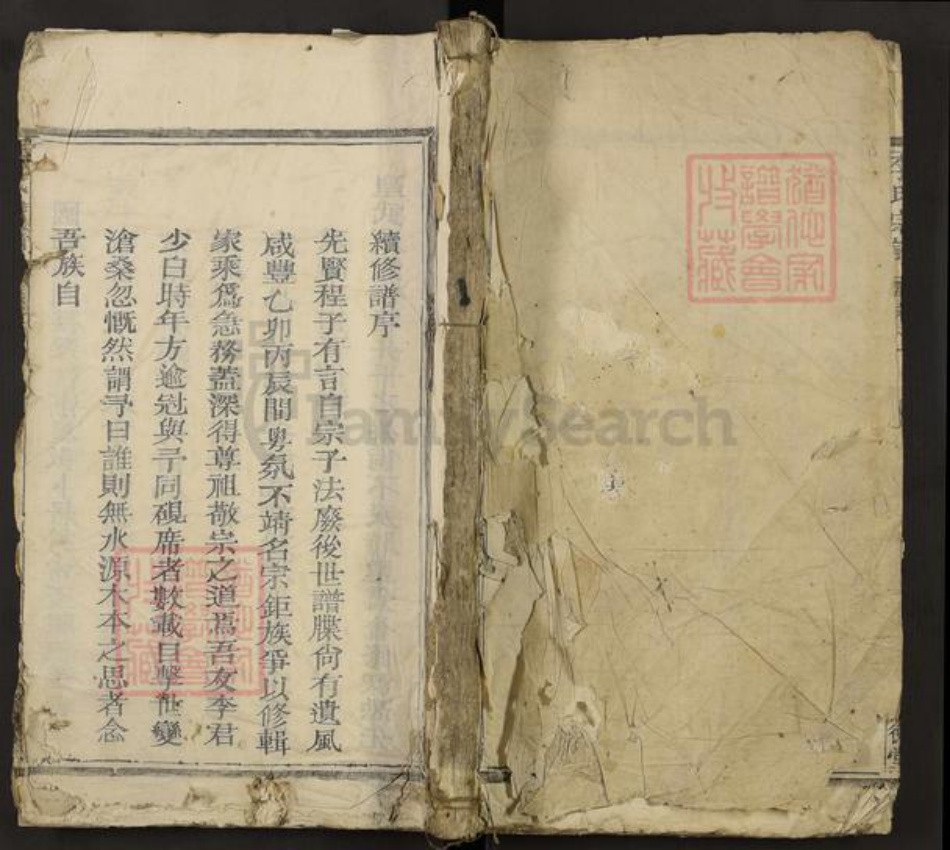 續修譜序
先賢程子有言自宗子法廢後世譜牒尙有遺風
咸豐乙卯丙辰間粤氛不靖名宗鉅族爭以修輯
家乘爲急務蓋深得尊祖敬宗之道焉吾友李君
少白時年方逾冠與予同硯席者數載目擊世變
滄桑忽慨然謂予曰誰則無水源木本之思者念
吾族自
譜學會
收藏
李氏宗譜
FamilySearch